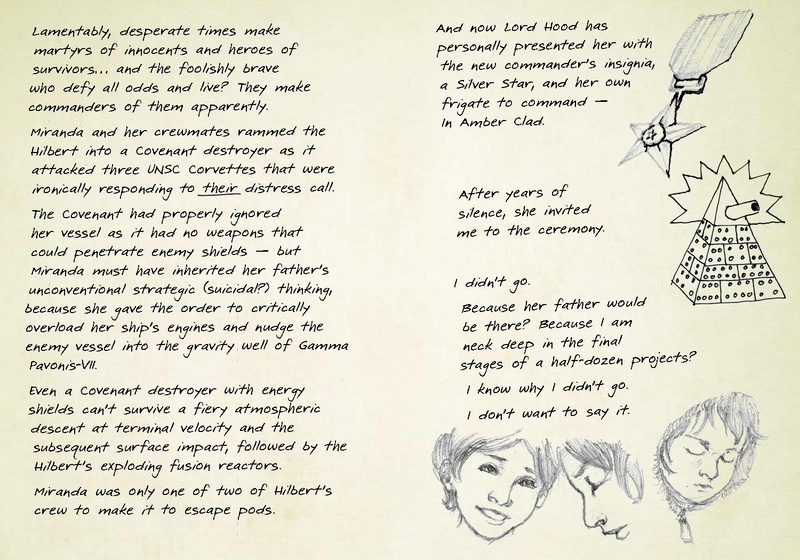 Lamentably, desperate times make
martyrs of innocents and heroes of
survivors... and the foolishly brave
who defy all odds and live? They make
commanders of them apparently.
Miranda and her crewmates rammed the
Hilbert into a Covenant destroyer as it
attacked three UNSC Corvettes that were
ironically responding to their distress call.
The Covenant had properly ignored
her vessel as it had no weapons that
could penetrate enemy shields — but
Miranda must have inherited her father's
unconventional strategic (suicidal?) thinking,
because she gave the order to critically
overload her ship's engines and nudge the
enemy vessel into the gravity well of Gamma
Pavonis-VII.
Even a Covenant destroyer with energy
shields can't survive a fiery atmospheric
descent at terminal velocity and the
subsequent surface impact, followed by the
Hilbert's exploding fusion reactors.
Miranda was only one of two of Hilbert's
crew to make it to escape pods.
And now Lord Hood has
personally presented her with
the new commander's insignia,
a Silver Star, and her own
frigate to command —
In Amber Clad.
After years of
silence, she invited
me to the ceremony.
I didn't go.
Because her father would
be there? Because I am
neck deep in the final
stages of a half-dozen projects?
I know why I didn't go.
I don't want to say it.